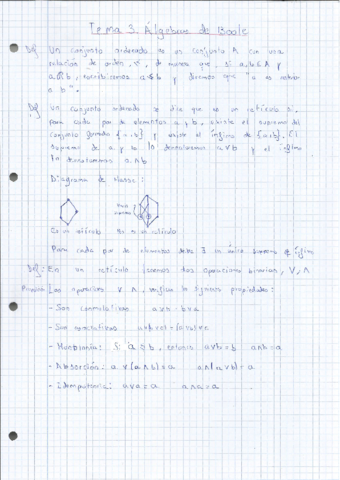 Tema 3. Álgebras de Boole
Def: Un conjunto ordenado es un conjunto A con una
relación de orden, ≤, de manera que, si a,b∈A y
aRb, escribiremos a≤b y diremos que "a es menor
a b".
Def: Un conjunto ordenado se dice que es un retículo si,
para cada par de elementos a y b, existe el supremo del
conjunto formado {a,b} y existe el ínfimo de {a,b}. El
supremo de a y b lo denotaremos a∨b y el ínfimo
lo denotaremos a∧b
Diagrama de Hasse:
Es un retículo No es un retículo
Para cada par de elementos debe ∃ un único supremo e ínfimo
Def: En un retículo tenemos dos operaciones binarias, ∨, ∧
Las operaciones ∨ ∧, verifica las siguientes propiedades:
- Son conmutativas a∨b = b∨a
- Son asociativas a∨(b∨c) = (a∨b)∨c
- Monotonía: Si a≤b, entonces a∨b=b a∧b=a
- Absorción: a∨(a∧b)=a a∧(a∨b)=a
- Idempotencia: a∨a=a a∧a=a